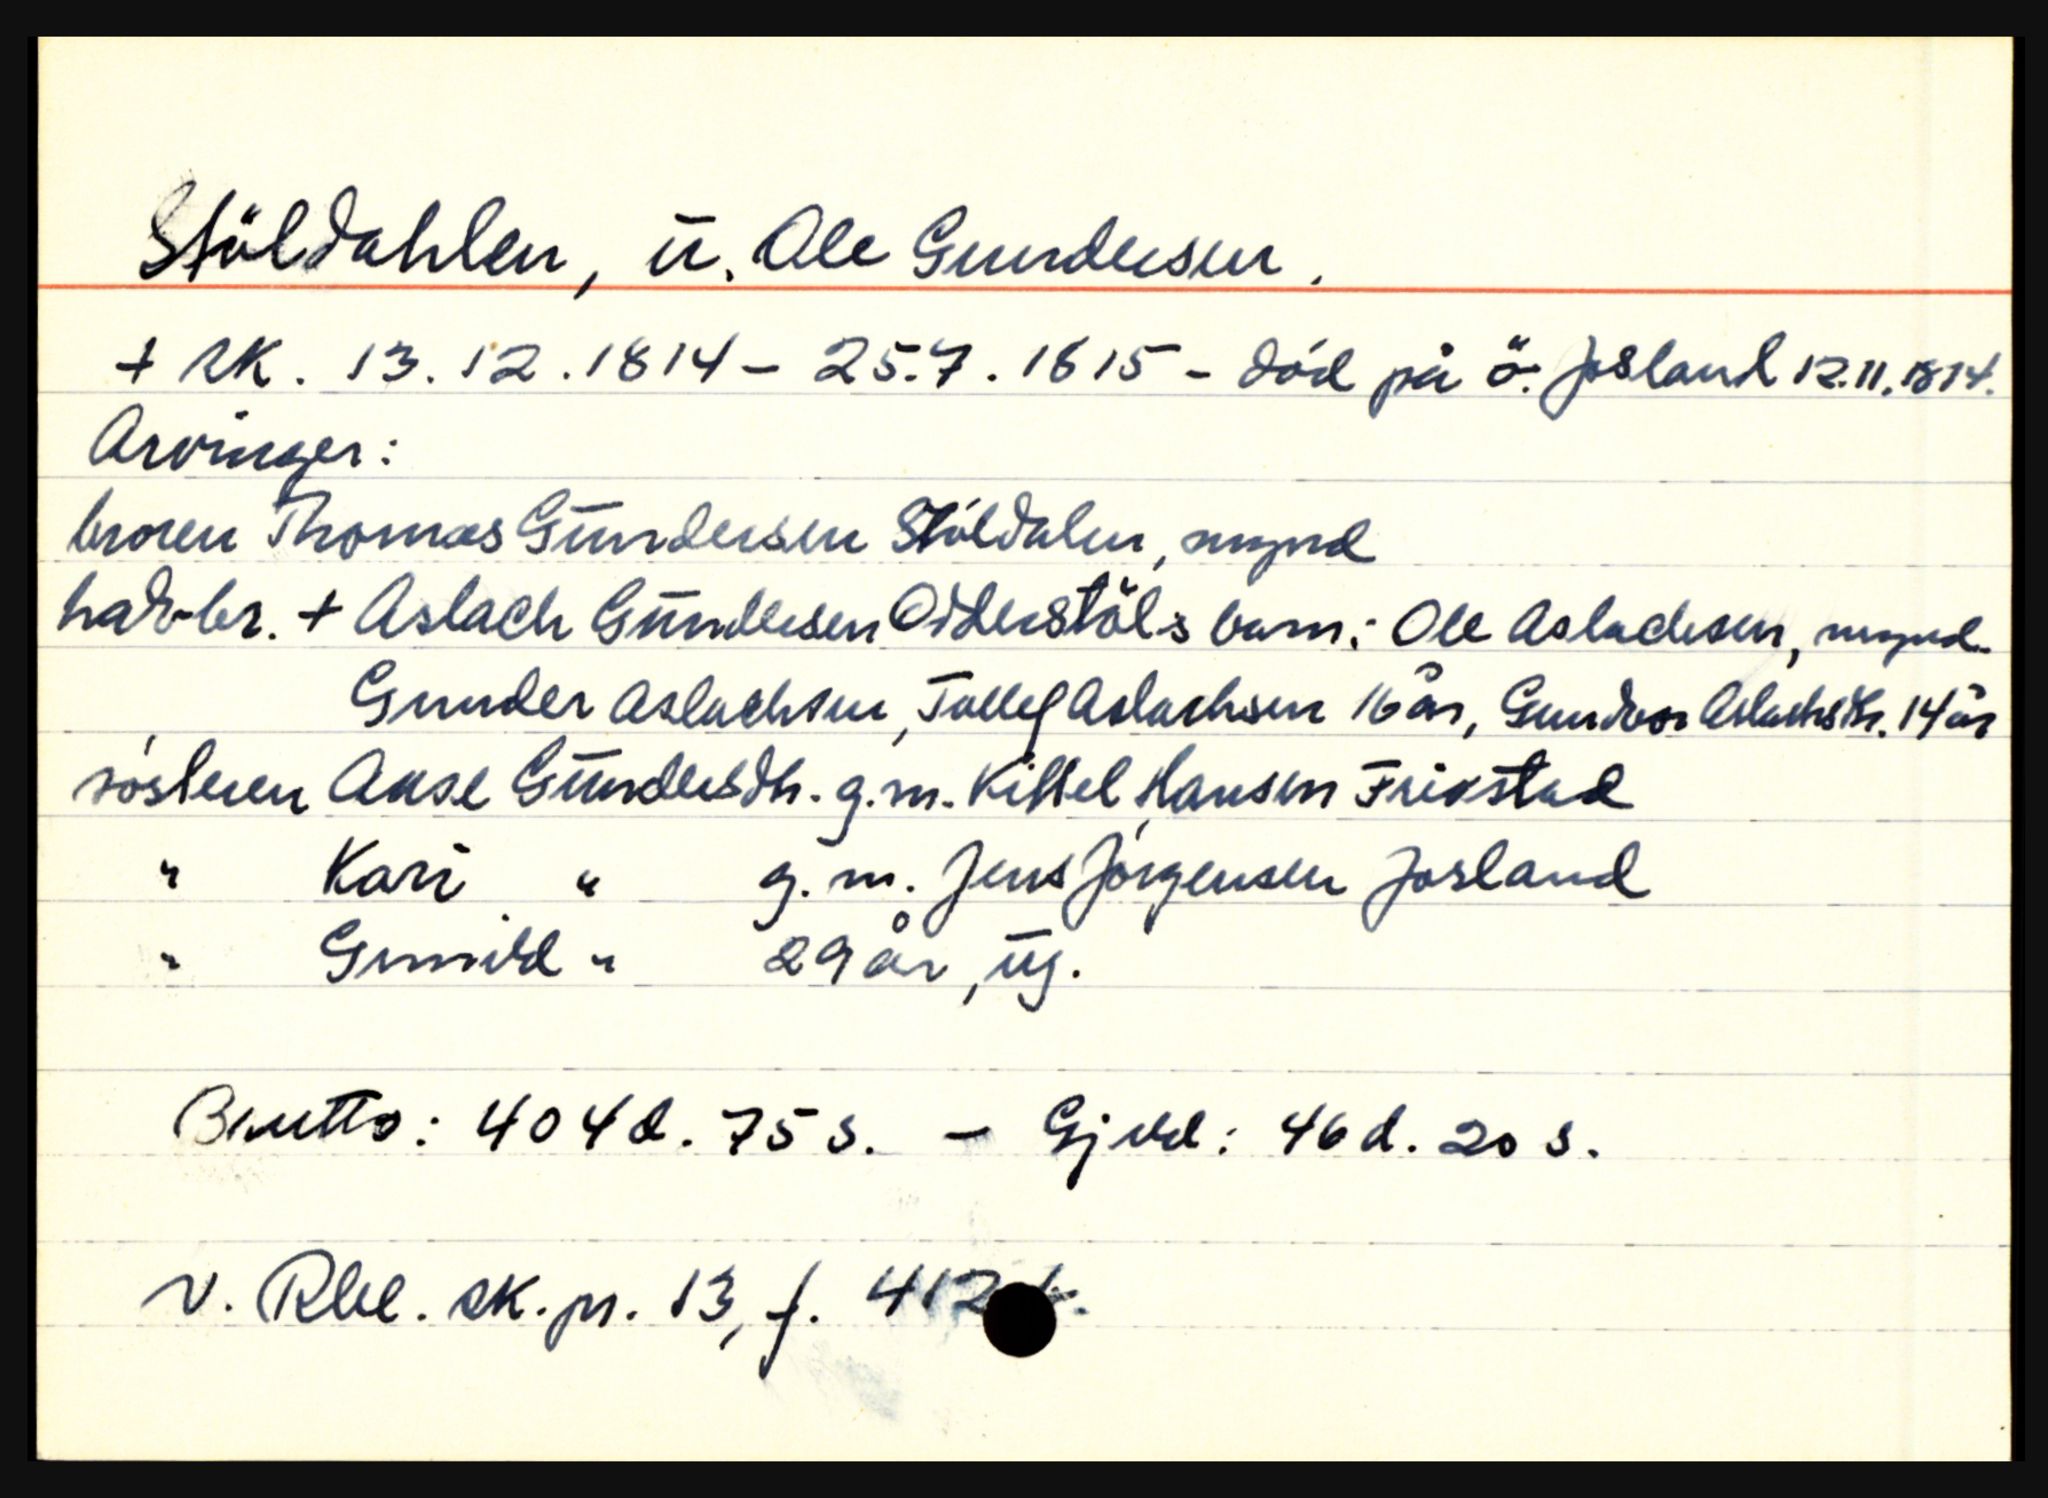 Stöldahlen, u. Ole Gundersen.
+ sk. 13.12.1814 - 25.7.1815 - död på ö. Josland 12.11.1814.
Arvinger:
broren Thomas Gundersen Stöldalen, mynd
halvbr. + Aslach Gundersen Oiderstöls barn: Ole Aslachsen, mynd.
Gunder Aslachsen, Tallef Aslachsen 16 år, Gundvor Aslachsdtr. 14 år
sösteren Aase Gundersdtr. g.m. Kittel Hansen Frikstad
" Kari " g.m. Jens Jörgensen Josland
" Gunild " 29 år, ug.
Brutto: 404 d. 75 s. - Gjeld: 46 d. 20 s.
V. Rbl. sk. pr. 13, f. 412